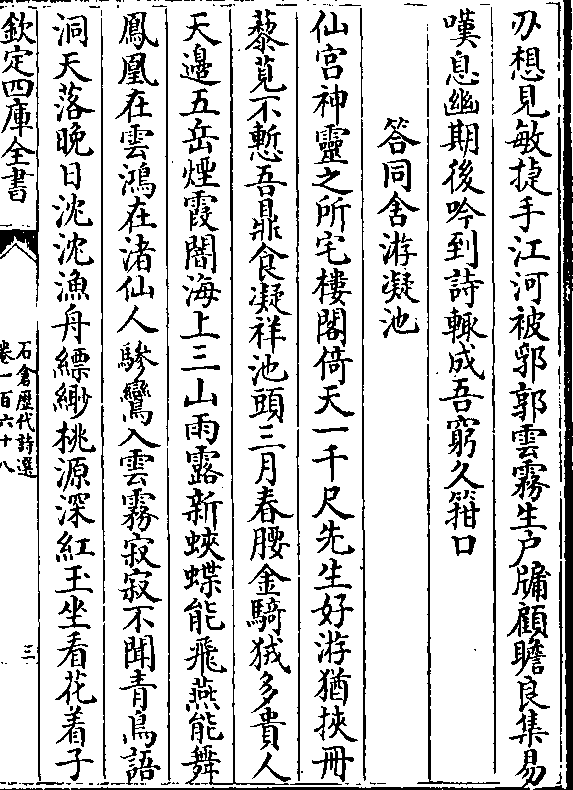 刃想見敏捷手江河被郛郭雲霧生户牖顧瞻良集易
嘆息幽期後吟到詩輙成吾窮久箝口
答同舍游凝池
仙宫神靈之所宅樓閣倚天一千尺先生好游猶挾冊
藜莧不慙吾鼎食凝祥池頭三月春腰金騎狨多貴人
天邊五岳煙霞闇海上三山雨露新蛺蝶能飛燕能舞
鳳凰在雲鴻在渚仙人驂鸞入雲霧寂寂不聞青鳥語
洞天落晚日沈沈漁舟縹緲桃源深紅玉坐看花着子
欽定四庫全書
石倉歷代詩選
卷一百六十八
三